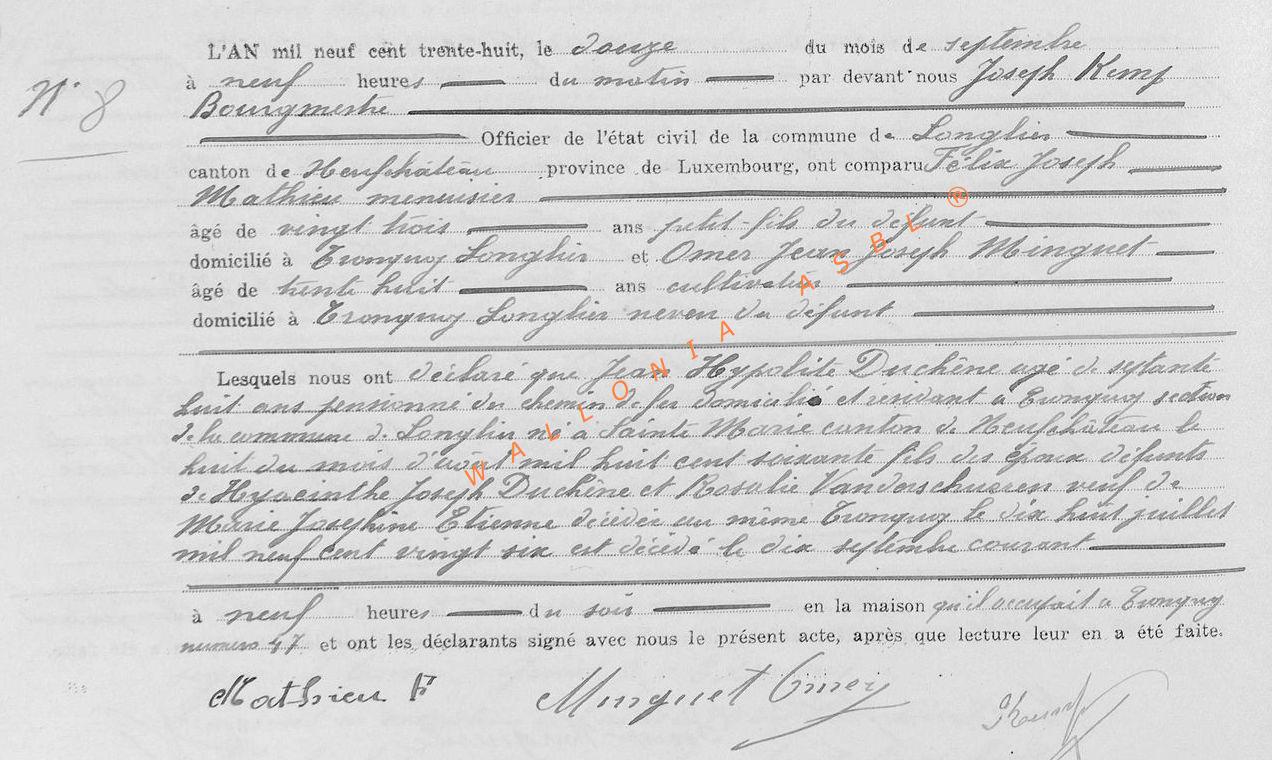 L'AN mil neuf cent trente-huit, le douze du mois de septembre
N° 8
à neuf heures du matin par devant nous Joseph Kemp
Bourgmestre
Officier de l'état civil de la commune de Longlier
canton de Neufchâteau province de Luxembourg, ont comparu Félix Joseph
Mathieu menuisier
âgé de vingt trois ans petit-fils du défunt
domicilié à Tronquoy Longlier et Omer Jean Joseph Minguet
âgé de trente huit ans cultivateur
domicilié à Tronquoy Longlier neveu du défunt
Lesquels nous ont déclaré que Jean Hypolite Duchêne agé de septante
huit ans pensionné du chemin de fer domicilié et résidant à Tronquoy section
de la commune de Longlier né à Sainte Marie canton de Neufchâteau le
huit du mois d'août mil huit cent soixante fils des époux défunts
de Hyacinthe Joseph Duchêne et Rosalie Vanderschueren veuf de
Marie Joséphine Etienne décédée au même Tronquoy le dix huit juillet
mil neuf cent vingt six est décédé le dix septembre courant
à neuf heures du soir en la maison qu'il occupait a Tronquoy
numero 47 et ont les déclarants signé avec nous le présent acte, après que lecture leur en a été faite.
Mathieu F Minguet Omer Kemp
WALLONIA ASBL ®